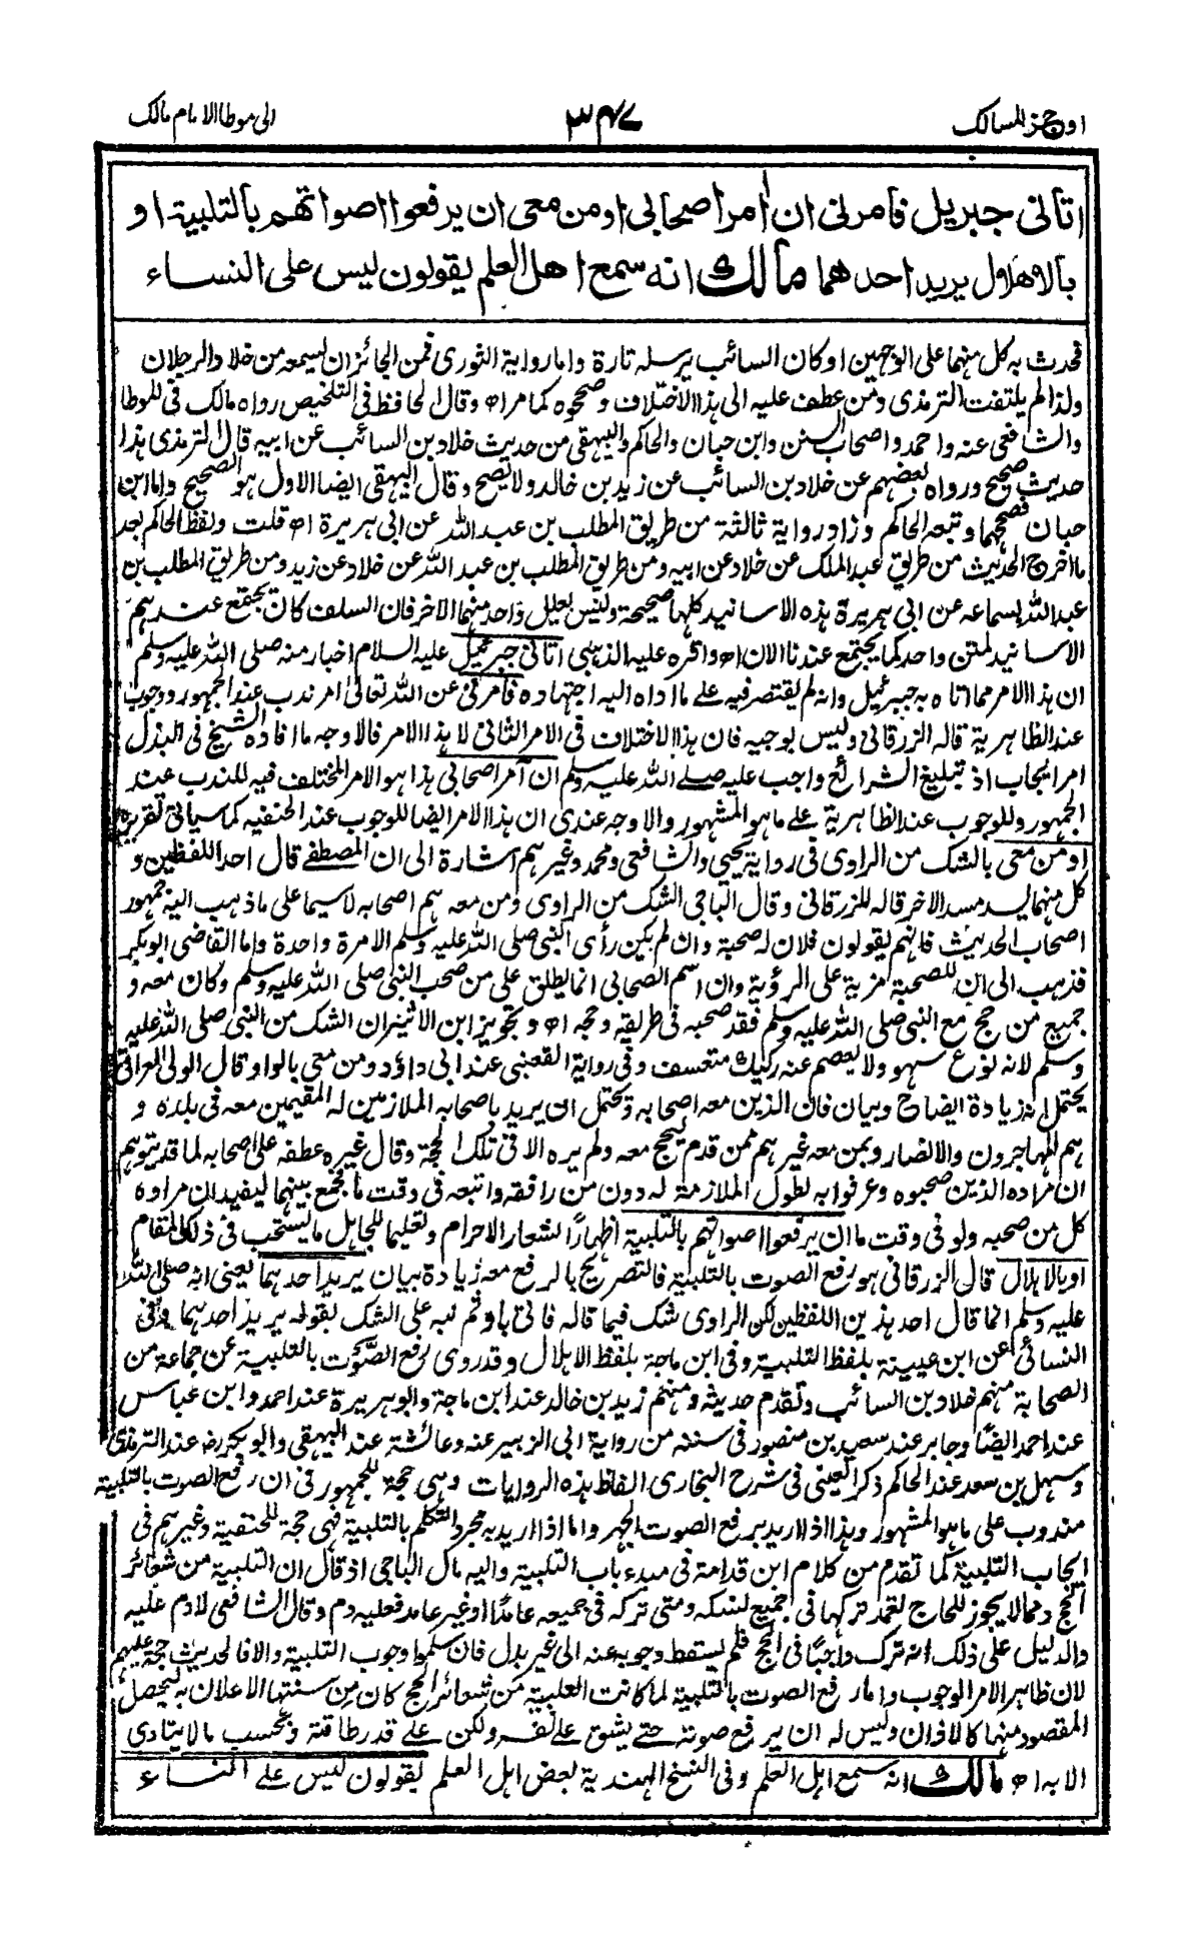 اوجز المسالك
٣٤٧
الى موطا الامام مالك
اتانى جبريل فامرنى ان آمر اصحابى او من معى ان يرفعوا اصواتهم بالتلبية او
بالاهلال يريد احدهما مالك انه سمع اهل العلم يقولون ليس على النساء
فحدث به كل منهما على الوجهين او كان السائب يرسله تارة واما رواية الثورى فمن الجائز ان يسمعه من خلاد الرجلان
ولذا لم يلتفت الترمذى ومن عطف عليه الى هذا الاختلاف وصححوه كما مر اه وقال الحافظ فى التلخيص رواه مالك فى الموطا
والشافعى عنه واحمد واصحاب السنن وابن حبان والحاكم والبيهقى من حديث خلاد بن السائب عن ابيه قال الترمذى هذا
حديث صحيح ورواه بعضهم عن خلاد بن السائب عن زيد بن خالد ولا يصح وقال البيهقى ايضا الاول هو الصحيح واما ابن
حبان فصححهما وتبعه الحاكم وزاد رواية ثالثة من طريق المطلب بن عبد الله عن ابى هريرة اه قلت ولفظ الحاكم بعد
ما اخرج الحديث من طريق عبد الملك عن خلاد عن ابيه ومن طريق المطلب بن عبد الله عن خلاد عن زيد ومن طريق المطلب بن
عبد الله بسماعه عن ابى هريرة هذه الاسانيد كلها صحيحة وليس يعلل واحد منهما الاخر فان السلف كان يجتمع عندهم
الاسانيد لمتن واحد كما يجتمع عندنا الان اه واقره عليه الذهبى اتانى جبرئيل عليه السلام اخبار منه صلى الله عليه وسلم
ان هذا الامر مما اتاه به جبرئيل وانه لم يقتصر فيه على ما اداه اليه اجتهاده فامرنى عن الله تعالى امر ندب عند الجمهور ووجوب
عند الظاهرية قاله الزرقانى وليس بوجيه فان هذا الاختلاف فى الامر الثانى لا هذا الامر فالاوجه ما افاده الشيخ فى البذل
امر ايجاب اذ تبليغ الشرائع واجب عليه صلى الله عليه وسلم ان آمر اصحابى هذا هو الامر المختلف فيه للندب عند
الجمهور وللوجوب عند الظاهرية على ما هو المشهور والاوجه عندى ان هذا الامر ايضا للوجوب عند الحنفيه كما سياتى تقريره
او من معى بالشك من الراوى فى رواية يحيى والشافعى ومحمد وغيرهم اشارة الى ان المصطفى قال احد اللفظين و
كل منهما يسد مسد الاخر قاله للزرقانى وقال الباجى الشك من الراوى ومن معه هم اصحابه لا سيما على ما ذهب اليه جمهور
اصحاب الحديث فانهم يقولون فلان له صحبة وان لم يكن رأى النبى صلى الله عليه وسلم الا مرة واحدة واما القاضى ابو بكر
فذهب الى ان للصحبة مزية على الرؤية وان اسم الصحابى انما يطلق على من صحب النبى صلى الله عليه وسلم وكان معه و
جميع من حج مع النبى صلى الله عليه وسلم فقد صحبه فى طريقه وحجه اه وتجويز ابن الاثير ان الشك من النبى صلى الله عليه
وسلم لانه نوع سهو ولا يعصم عنه ركيك متعسف وفى رواية القعنبى عند ابى داؤد ومن معى بالواو قال الولى العراقى
يحتمل انه زيادة ايضاح وبيان فان الذين معه اصحابه ويحتمل ان يريد باصحابه الملازمين له المقيمين معه فى بلده و
هم المهاجرون والانصار وبمن معه غيرهم ممن قدم ليحج معه ولم يره الا فى تلك الحجة وقال غيره عطفه على اصحابه لما قد يتوهم
ان مراده الذين صحبوه وعرفوا به لطول الملازمة له دون من رافقه واتبعه فى وقت ما فجمع بينهما ليفيد ان مراده
كل من صحبه ولو فى وقت ما ان يرفعوا اصواتهم بالتلبية اظهارًا لشعار الاحرام وتعليما للجاهل ما يستحب فى ذلك المقام
او بالاهلال قال الزرقانى هو رفع الصوت بالتلبية فالتصريح بالرفع معه زيادة بيان يريد احدهما يعنى انه صلى الله
عليه وسلم انما قال احد هذين اللفظين لكن الراوى شك فيما قاله فاتى باو ثم نبه على الشك بقوله يريد احدهما وفى
النسائى عن ابن عيينة بلفظ التلبية وفى ابن ماجة بلفظ الاهلال وقد روى رفع الصوت بالتلبية عن جماعة من
الصحابة منهم خلاد بن السائب وتقدم حديثه ومنهم زيد بن خالد عند ابن ماجة وابو هريرة عند احمد وابن عباس
عند احمد ايضًا وجابر عند سعيد بن منصور فى سننه من رواية ابى الزبير عنه وعائشة عند البيهقى وابو بكر رضـ عند الترمذى
وسهل بن سعد عند الحاكم ذكر العينى فى شرح البخارى الفاظ هذه الروايات وهى حجة للجمهور فى ان رفع الصوت بالتلبية
مندوب على ما هو المشهور وهذا اذا اريد برفع الصوت الجهر واما اذا اريد به مجرد التكلم بالتلبية فهى حجة للحنفية وغيرهم فى
ايجاب التلبية كما تقدم من كلام ابن قدامة فى مبدء باب التلبية واليه مال الباجى اذ قال ان التلبية من شعائر
الحج ومما لا يجوز للحاج تعمد تركها فى جميع نسكه ومتى تركه فى جميعه عامدًا او غير عامد فعليه دم وقال الشافعى لا دم عليه
والدليل على ذلك انه ترك واجبًا فى الحج فلم يسقط وجوبه عنه الى غير بدل فان سلموا وجوب التلبية والا فالحديث حجة عليهم
لان ظاهر الامر الوجوب واما رفع الصوت بالتلبية لما كانت التلبية من شعائر الحج كان من سنتها الاعلان به ليحصل
المقصود منها كالاذان وليس له ان يرفع صوته حتى يشق على نفسه ولكن على قدر طاقته وبحسب ما لا يتاذى
الا به اه مالك انه سمع اهل العلم وفى النسخ الهندية بعض اهل العلم يقولون ليس على النساء